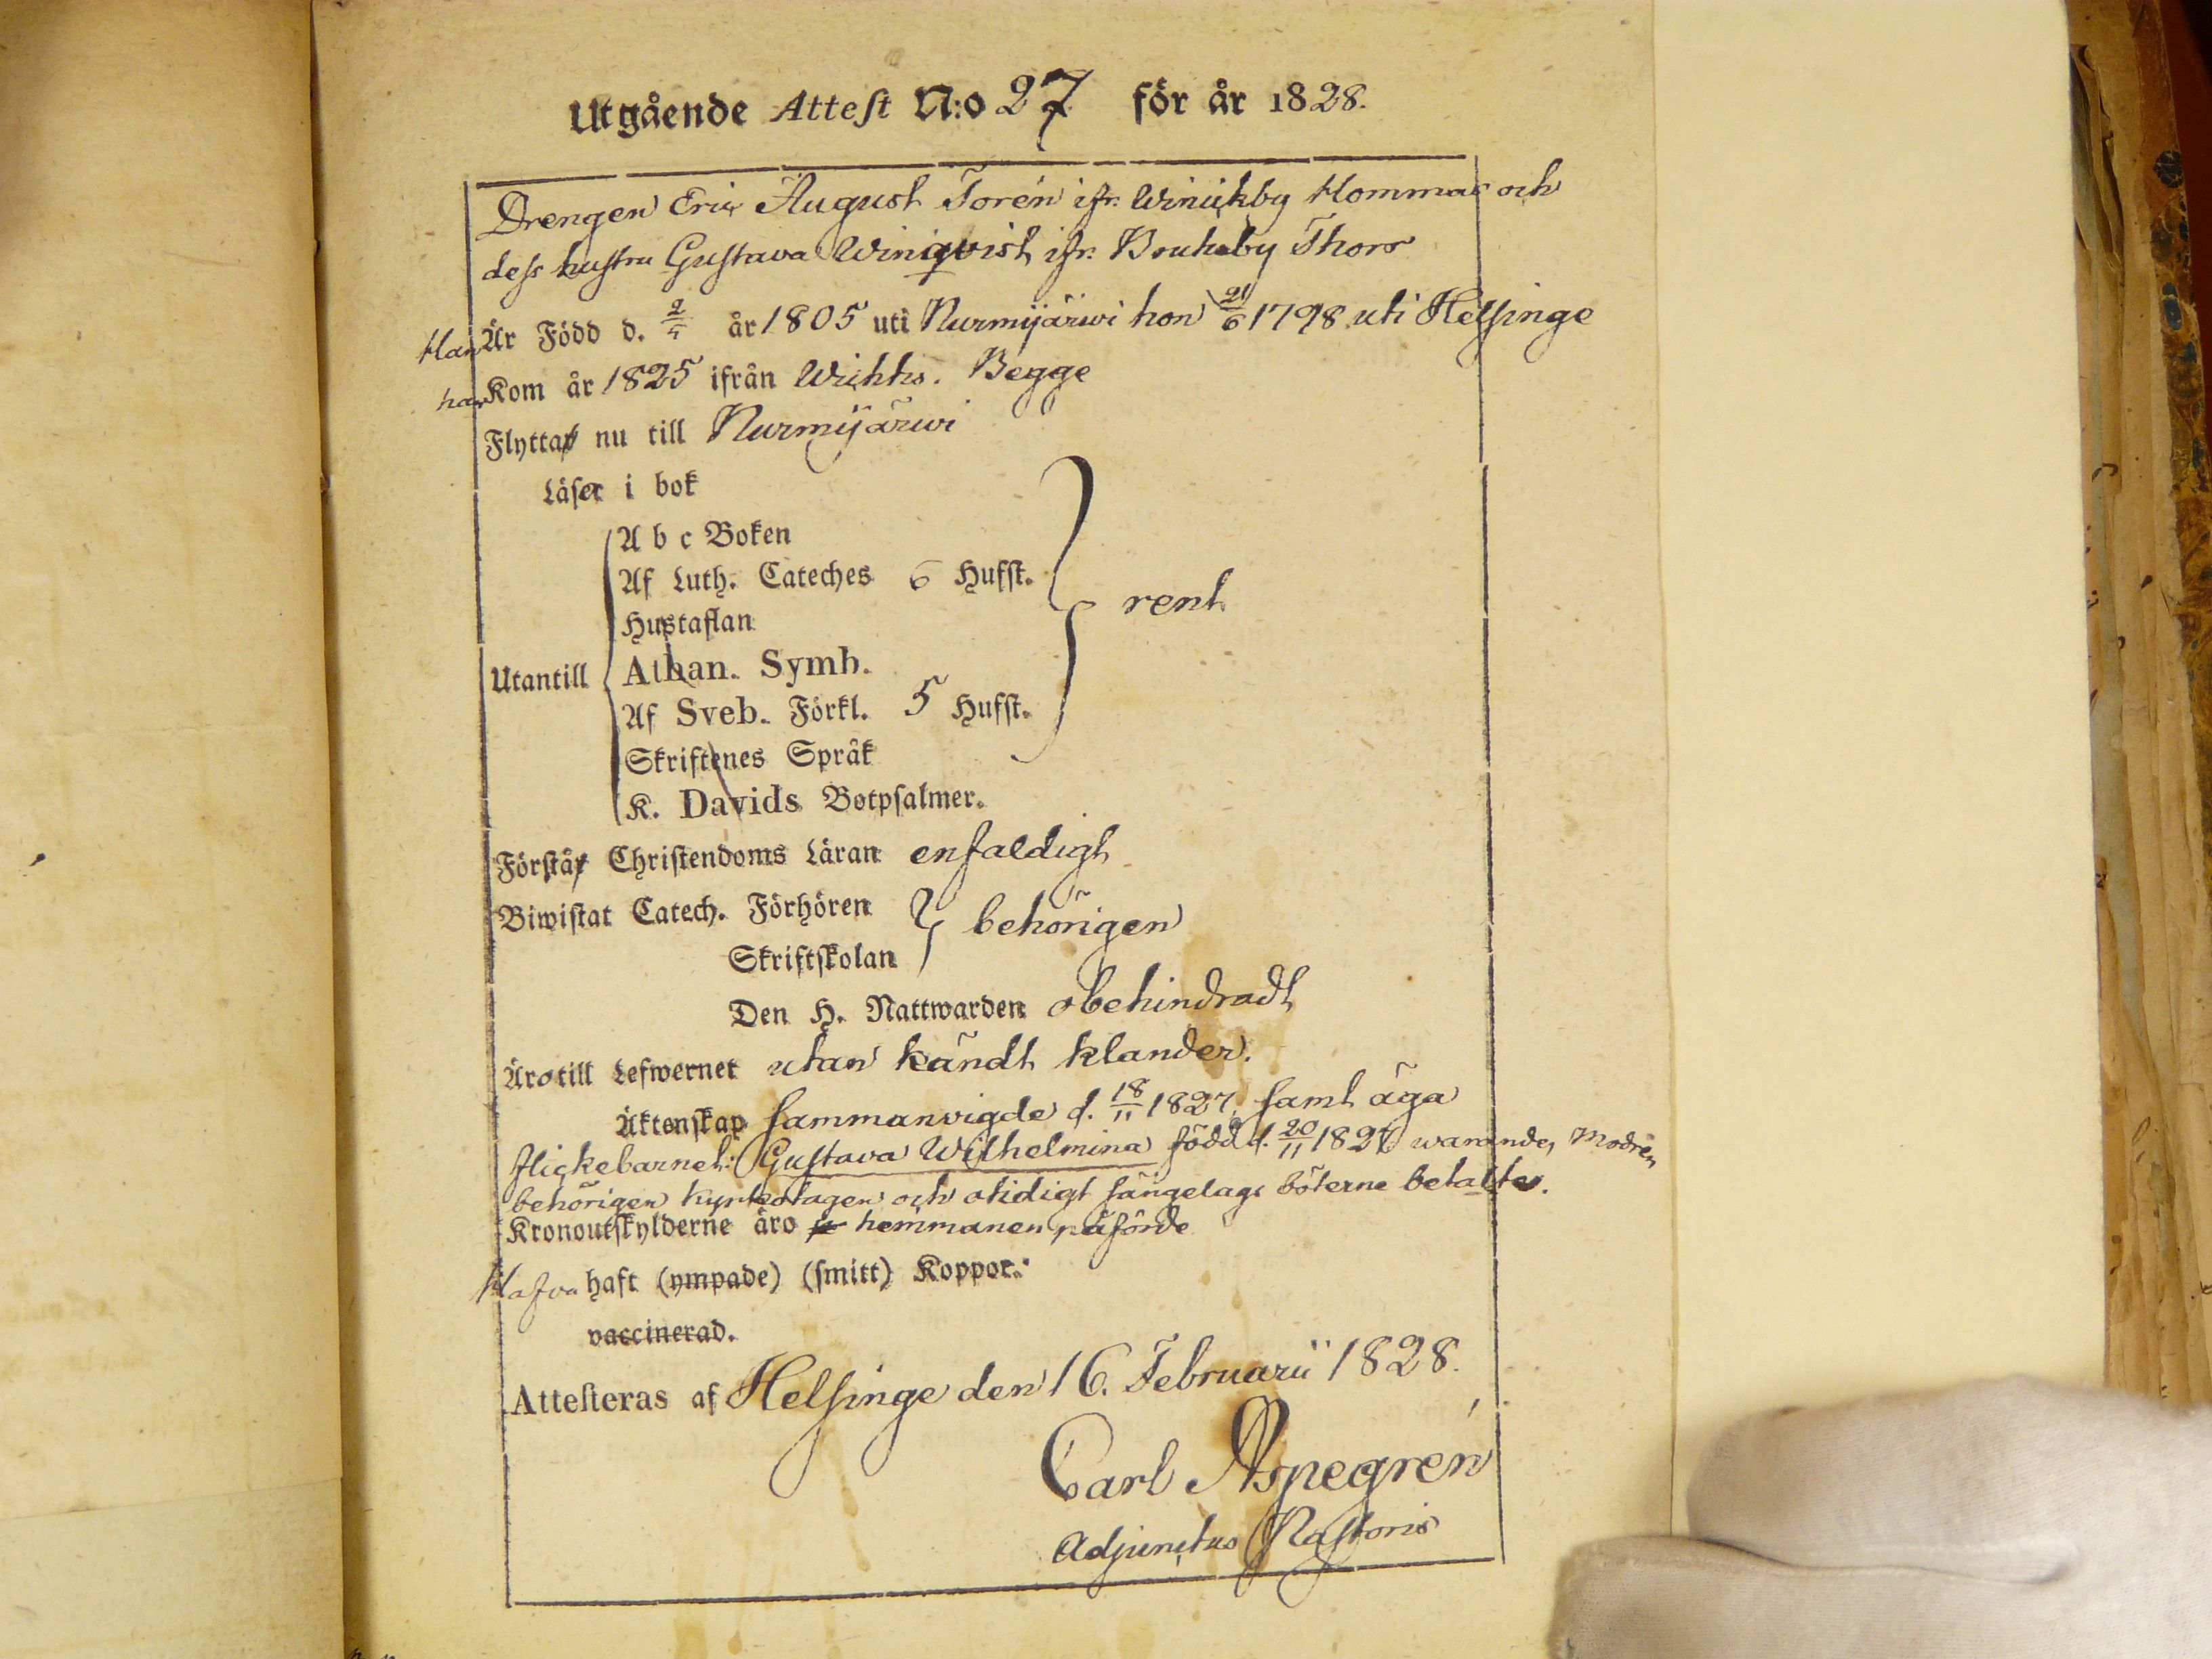 Utgående Attest N:o 27 för år 1828.
Drengen Eric August Torén ifr. Winickby Hommas och
dess hustru Gustava Winiqvist ifr. Bruksby Thors
Han Är Född d. 2/5 år 1805 uti Nurmijärwi hon 21/6 1798 uti Helsinge
han Kom år 1825 ifrån Wichtis. Begge
Flytta nu till Nurmijärwi
Läser i bok
A b c Boken
Af Luth. Cateches 6 Hufst.
Hustaflan
rent
Utantill Athan. Symb.
Af Sveb. Förkl. 5 Hufst.
Skriftenes Språk
K. Davids Botpsalmer.
Förstå Christendoms Läran enfaldigt
Biwistat Catech. Förhören behörigen
Skriftskolan
Den H. Nattwarden obehindradt
Äro till Lefwernet utan kändt klander.
Äktenskap sammanvigde d. 18/11 1827, samt äga
flickebarnet: Gustava Wilhelmina född d. 20/11 1827 warande, Modren
behörigen kyrkotagen och otidigt sängelags böterne betalte.
Kronoutskylderne äro hemmanen påförde
Hafva haft (ympade) (smitt) Koppor.
vaccinerad.
Attesteras af Helsinge den 16. Februarii 1828.
Carl Aspegrén
Adjunctus Pastoris